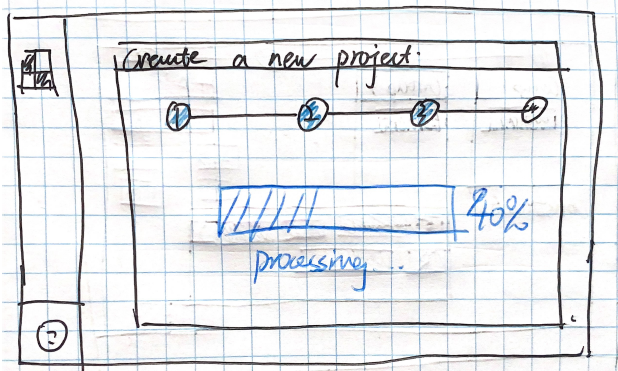 Create a new project.
1 2 3 4
40%
processing...